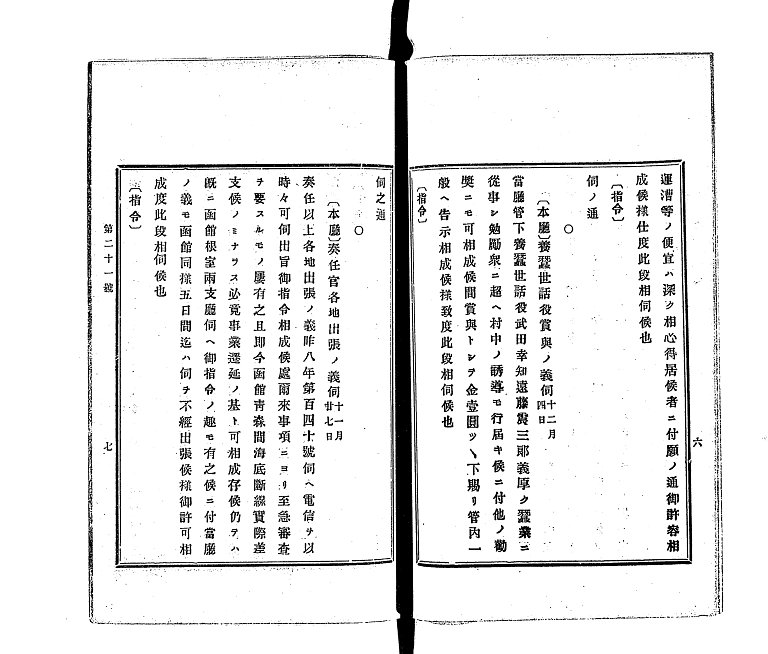 運漕等ノ便宜ハ深ク相心得居候者ニ付願ノ通御許容相
成候樣仕度此段相伺候也
〔指令〕
伺ノ通
〇
〔本廳〕養蠶世話役賞與ノ義伺十二月四日
當廳管下養蠶世話役武田幸知遠藤震三郎義厚ク蠶業ニ
從事シ勉勵衆ニ超ヘ村中ノ誘導モ行屆キ候ニ付他ノ勸
奬ニモ可相成候間賞與トシテ金壹圓ツヽ下賜リ管內一
般ヘ告示相成候樣致度此段相伺候也
〔指令〕
六
伺之通
〇
〔本廳〕奏任官各地出張ノ義伺十一月廿七日
奏任以上各地出張ノ義昨八年第百四十號伺ヘ電信ヲ以
時々可伺出旨御指令相成候處爾來事項ニヨリ至急審査
ヲ要スルモノ屢有之且即今函館靑森間海底斷線實際差
支候ノミナラス必竟事業遷延ノ基ト可相成存候仍テハ
旣ニ函館根室兩支廳伺ヘ御指令ノ趣モ有之候ニ付當廳
ノ義モ函館同樣五日間迄ハ伺ヲ不經出張候樣御許可相
成度此段相伺候也
〔指令〕
第二十一號
七